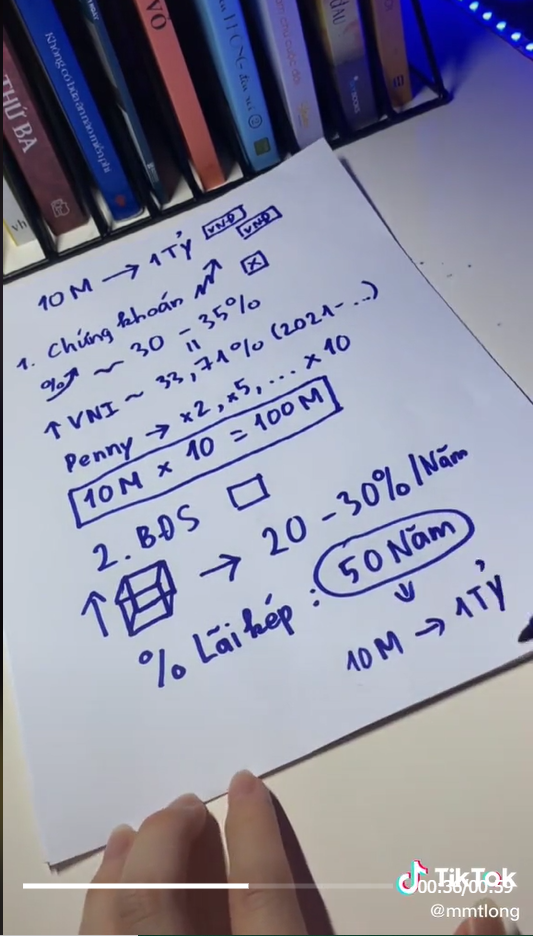 THỨ BA
VÕ
vh
10M → 1TỶ VNĐ
VNĐ
1. Chứng khoán x
%↗ ~ 30 - 35%
"
↑ VNI ~ 33,71% (2021-...)
Penny → x2, x5, ... x 10
10M x 10 = 100M
2. BĐS
↑ → 20 - 30%/Năm
% Lãi kép : 50 Năm
10M → 1TỶ
TikTok
00:36/00:59
@mmtlong